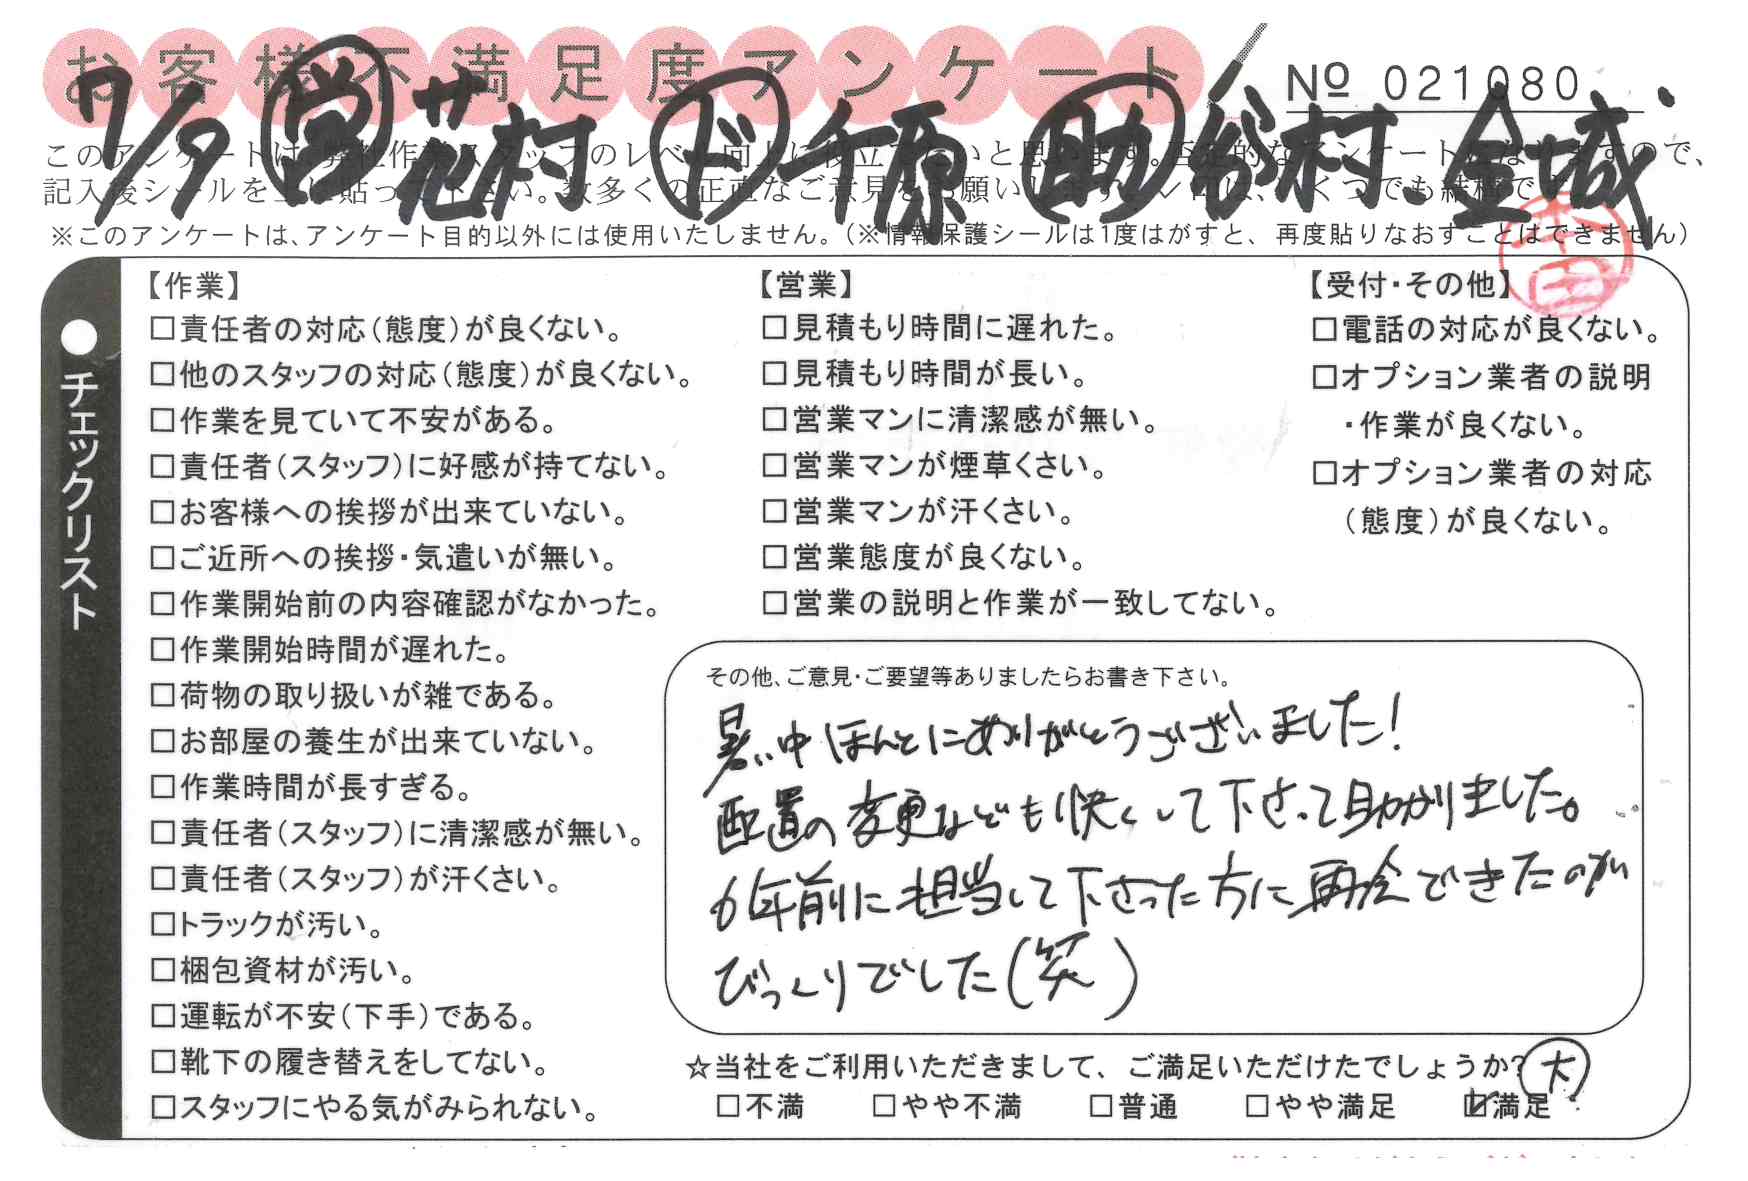 お客様不満足度アンケート
№ 021080
7/9 営 花村 ド 千原 助 谷村、金城
このアンケートは、弊社作業スタッフのレベル向上に役立てたいと思います。否定的なアンケートになりますので、
記入後シールを上に貼って下さい。数多くの正直なご意見をお願いします。レ印は、いくつでも結構です。
※このアンケートは、アンケート目的以外には使用いたしません。（※情報保護シールは1度はがすと、再度貼りなおすことはできません）
本田
●チェックリスト
【作業】
□責任者の対応（態度）が良くない。
□他のスタッフの対応（態度）が良くない。
□作業を見ていて不安がある。
□責任者（スタッフ）に好感が持てない。
□お客様への挨拶が出来ていない。
□ご近所への挨拶・気遣いが無い。
□作業開始前の内容確認がなかった。
□作業開始時間が遅れた。
□荷物の取り扱いが雑である。
□お部屋の養生が出来ていない。
□作業時間が長すぎる。
□責任者（スタッフ）に清潔感が無い。
□責任者（スタッフ）が汗くさい。
□トラックが汚い。
□梱包資材が汚い。
□運転が不安（下手）である。
□靴下の履き替えをしてない。
□スタッフにやる気がみられない。
【営業】
□見積もり時間に遅れた。
□見積もり時間が長い。
□営業マンに清潔感が無い。
□営業マンが煙草くさい。
□営業マンが汗くさい。
□営業態度が良くない。
□営業の説明と作業が一致してない。
【受付・その他】
□電話の対応が良くない。
□オプション業者の説明
・作業が良くない。
□オプション業者の対応
（態度）が良くない。
その他、ご意見・ご要望等ありましたらお書き下さい。
暑い中ほんとにありがとうございました！
配置の変更なども快くして下さって助かりました。
6年前に担当して下さった方に再会できたのが
びっくりでした（笑）
☆当社をご利用いただきまして、ご満足いただけたでしょうか？ 大
□不満 □やや不満 □普通 □やや満足 ☑満足！